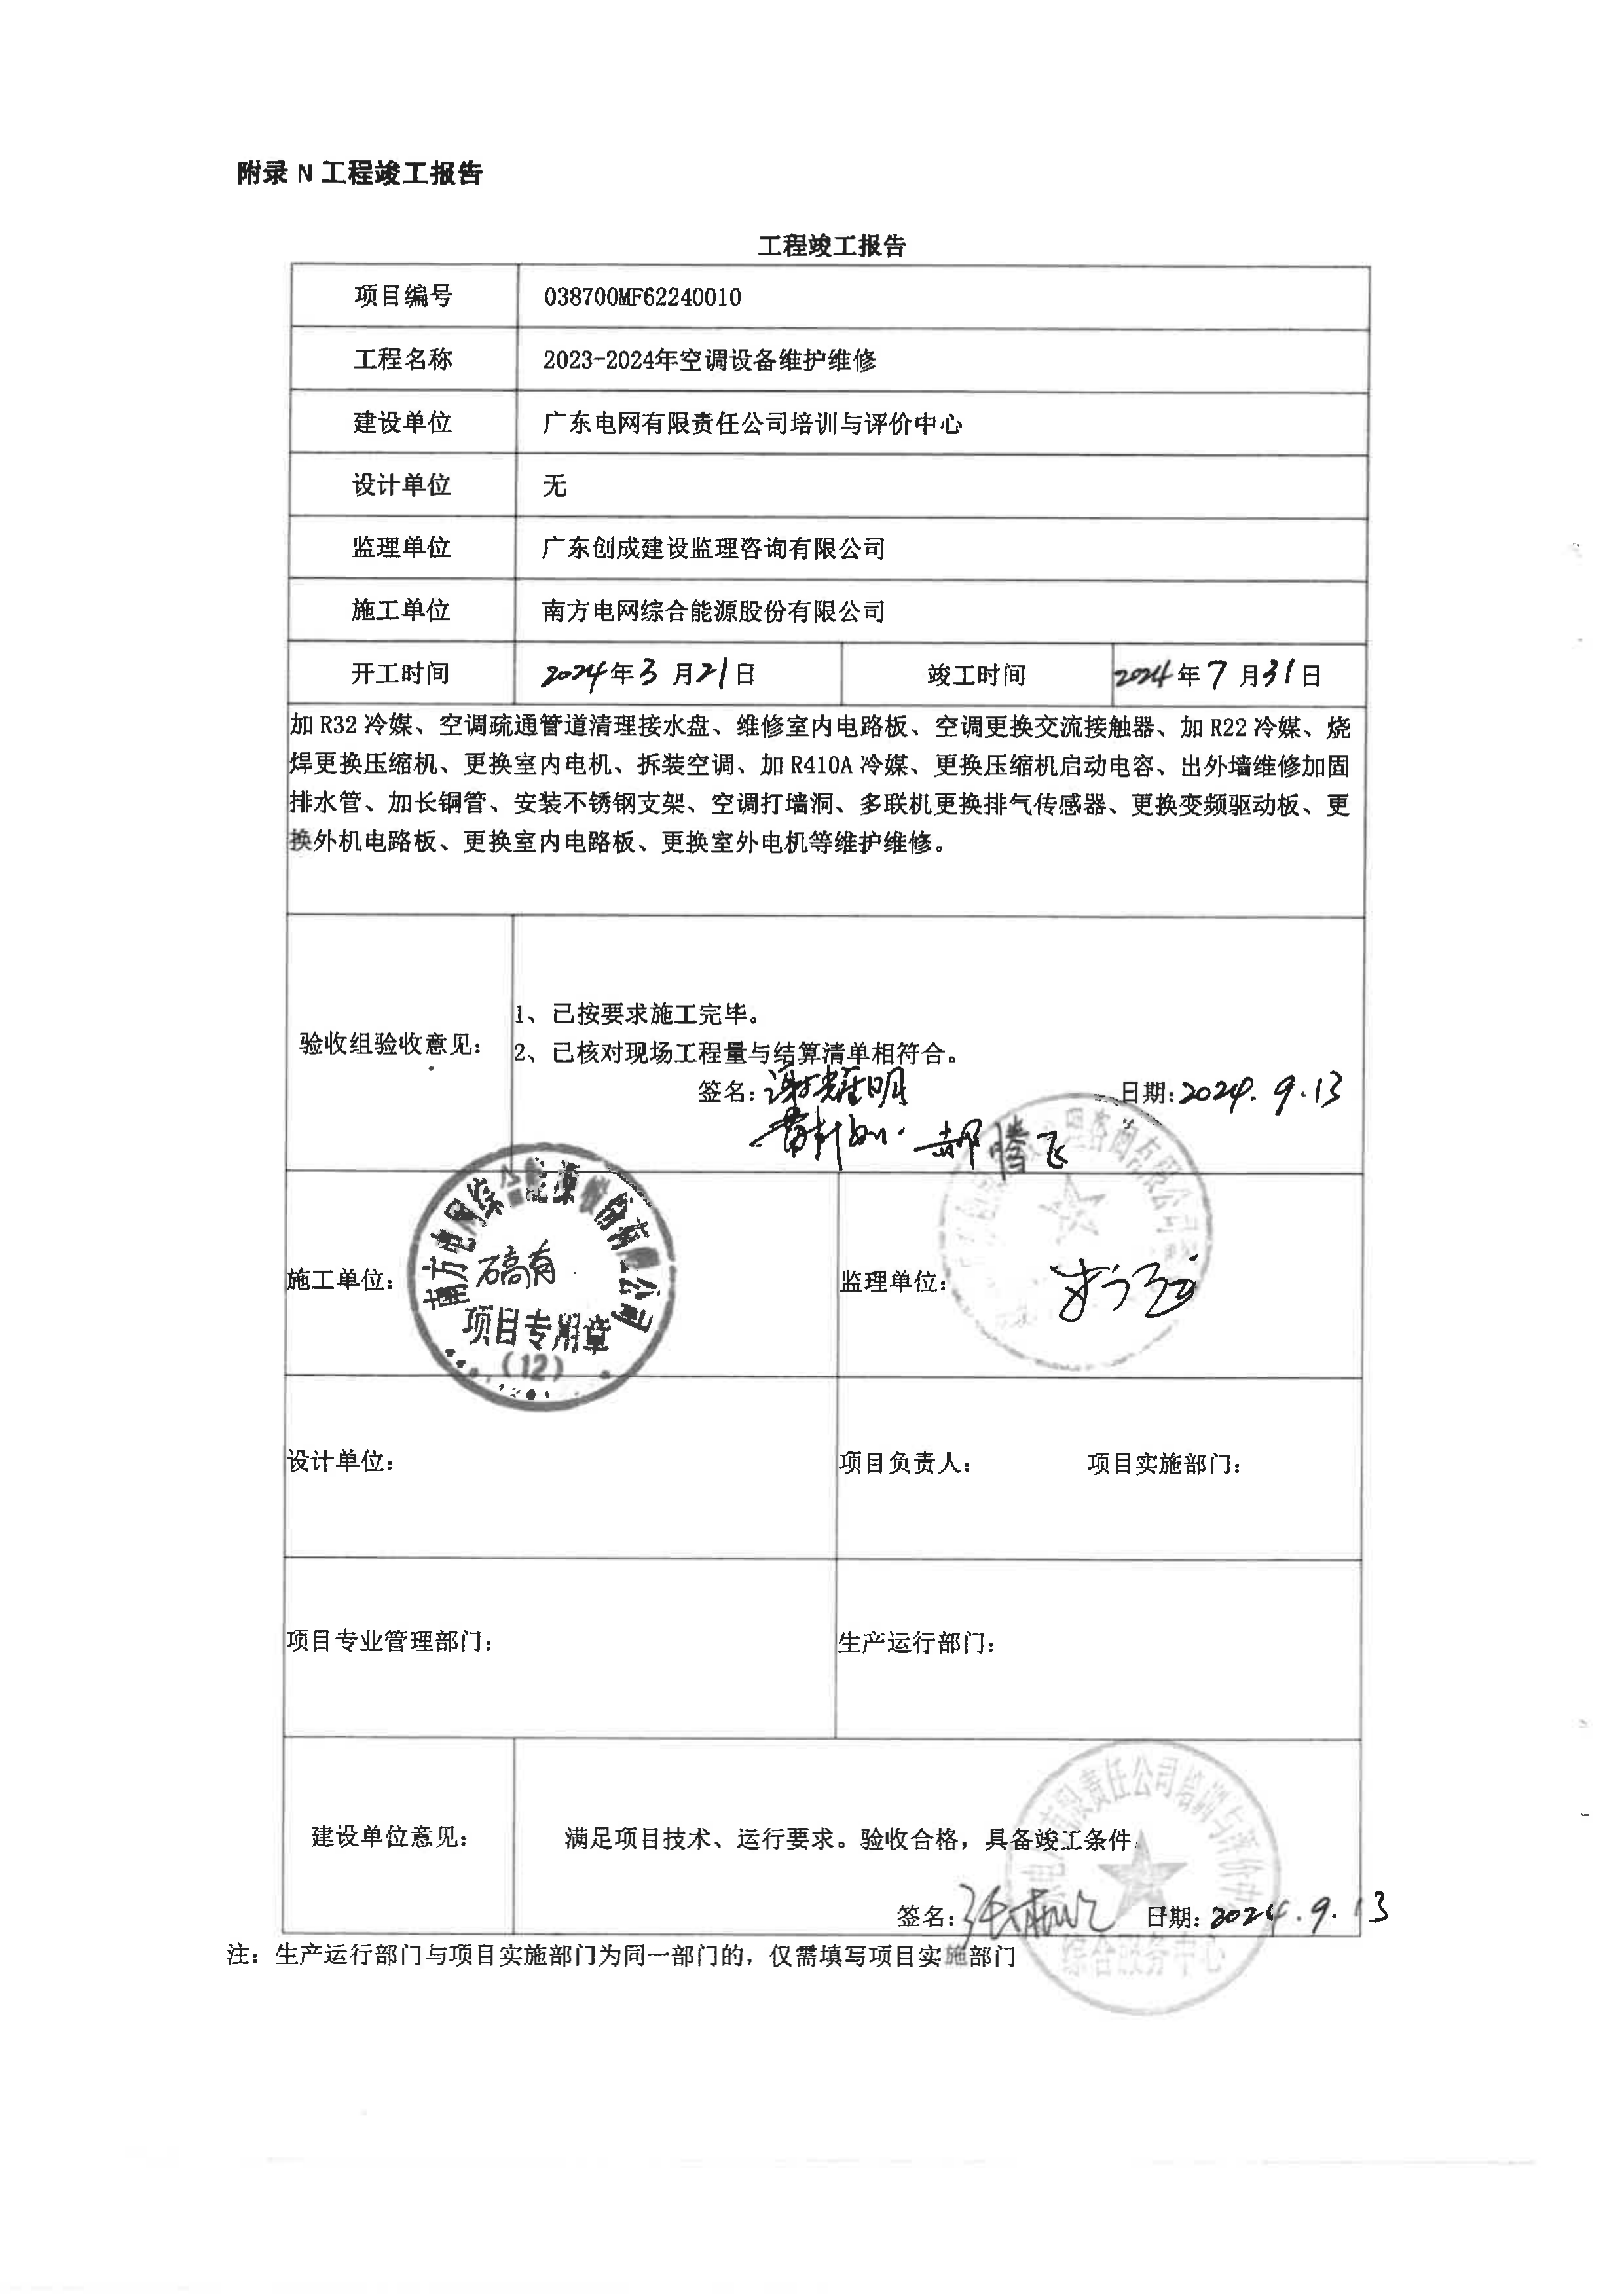 附录 N 工程竣工报告
工程竣工报告
项目编号 038700MF62240010
工程名称 2023-2024年空调设备维护维修
建设单位 广东电网有限责任公司培训与评价中心
设计单位 无
监理单位 广东创成建设监理咨询有限公司
施工单位 南方电网综合能源股份有限公司
开工时间 2024年3月21日 竣工时间 2024年7月31日
加 R32 冷媒、空调疏通管道清理接水盘、维修室内电路板、空调更换交流接触器、加 R22 冷媒、烧
焊更换压缩机、更换室内电机、拆装空调、加 R410A 冷媒、更换压缩机启动电容、出外墙维修加固
排水管、加长铜管、安装不锈钢支架、空调打墙洞、多联机更换排气传感器、更换变频驱动板、更
换外机电路板、更换室内电路板、更换室外电机等维护维修。
1、已按要求施工完毕。
验收组验收意见：
2、已核对现场工程量与结算清单相符合。
签名：谢耀明 日期：2024.9.13
郝腾飞
南方电网综合能源股份有限公司
施工单位： 监理单位：
项目专用章
(12)
设计单位： 项目负责人： 项目实施部门：
项目专业管理部门： 生产运行部门：
建设单位意见： 满足项目技术、运行要求。验收合格，具备竣工条件
签名： 日期：2024.9.13
综合服务中心
注：生产运行部门与项目实施部门为同一部门的，仅需填写项目实施部门